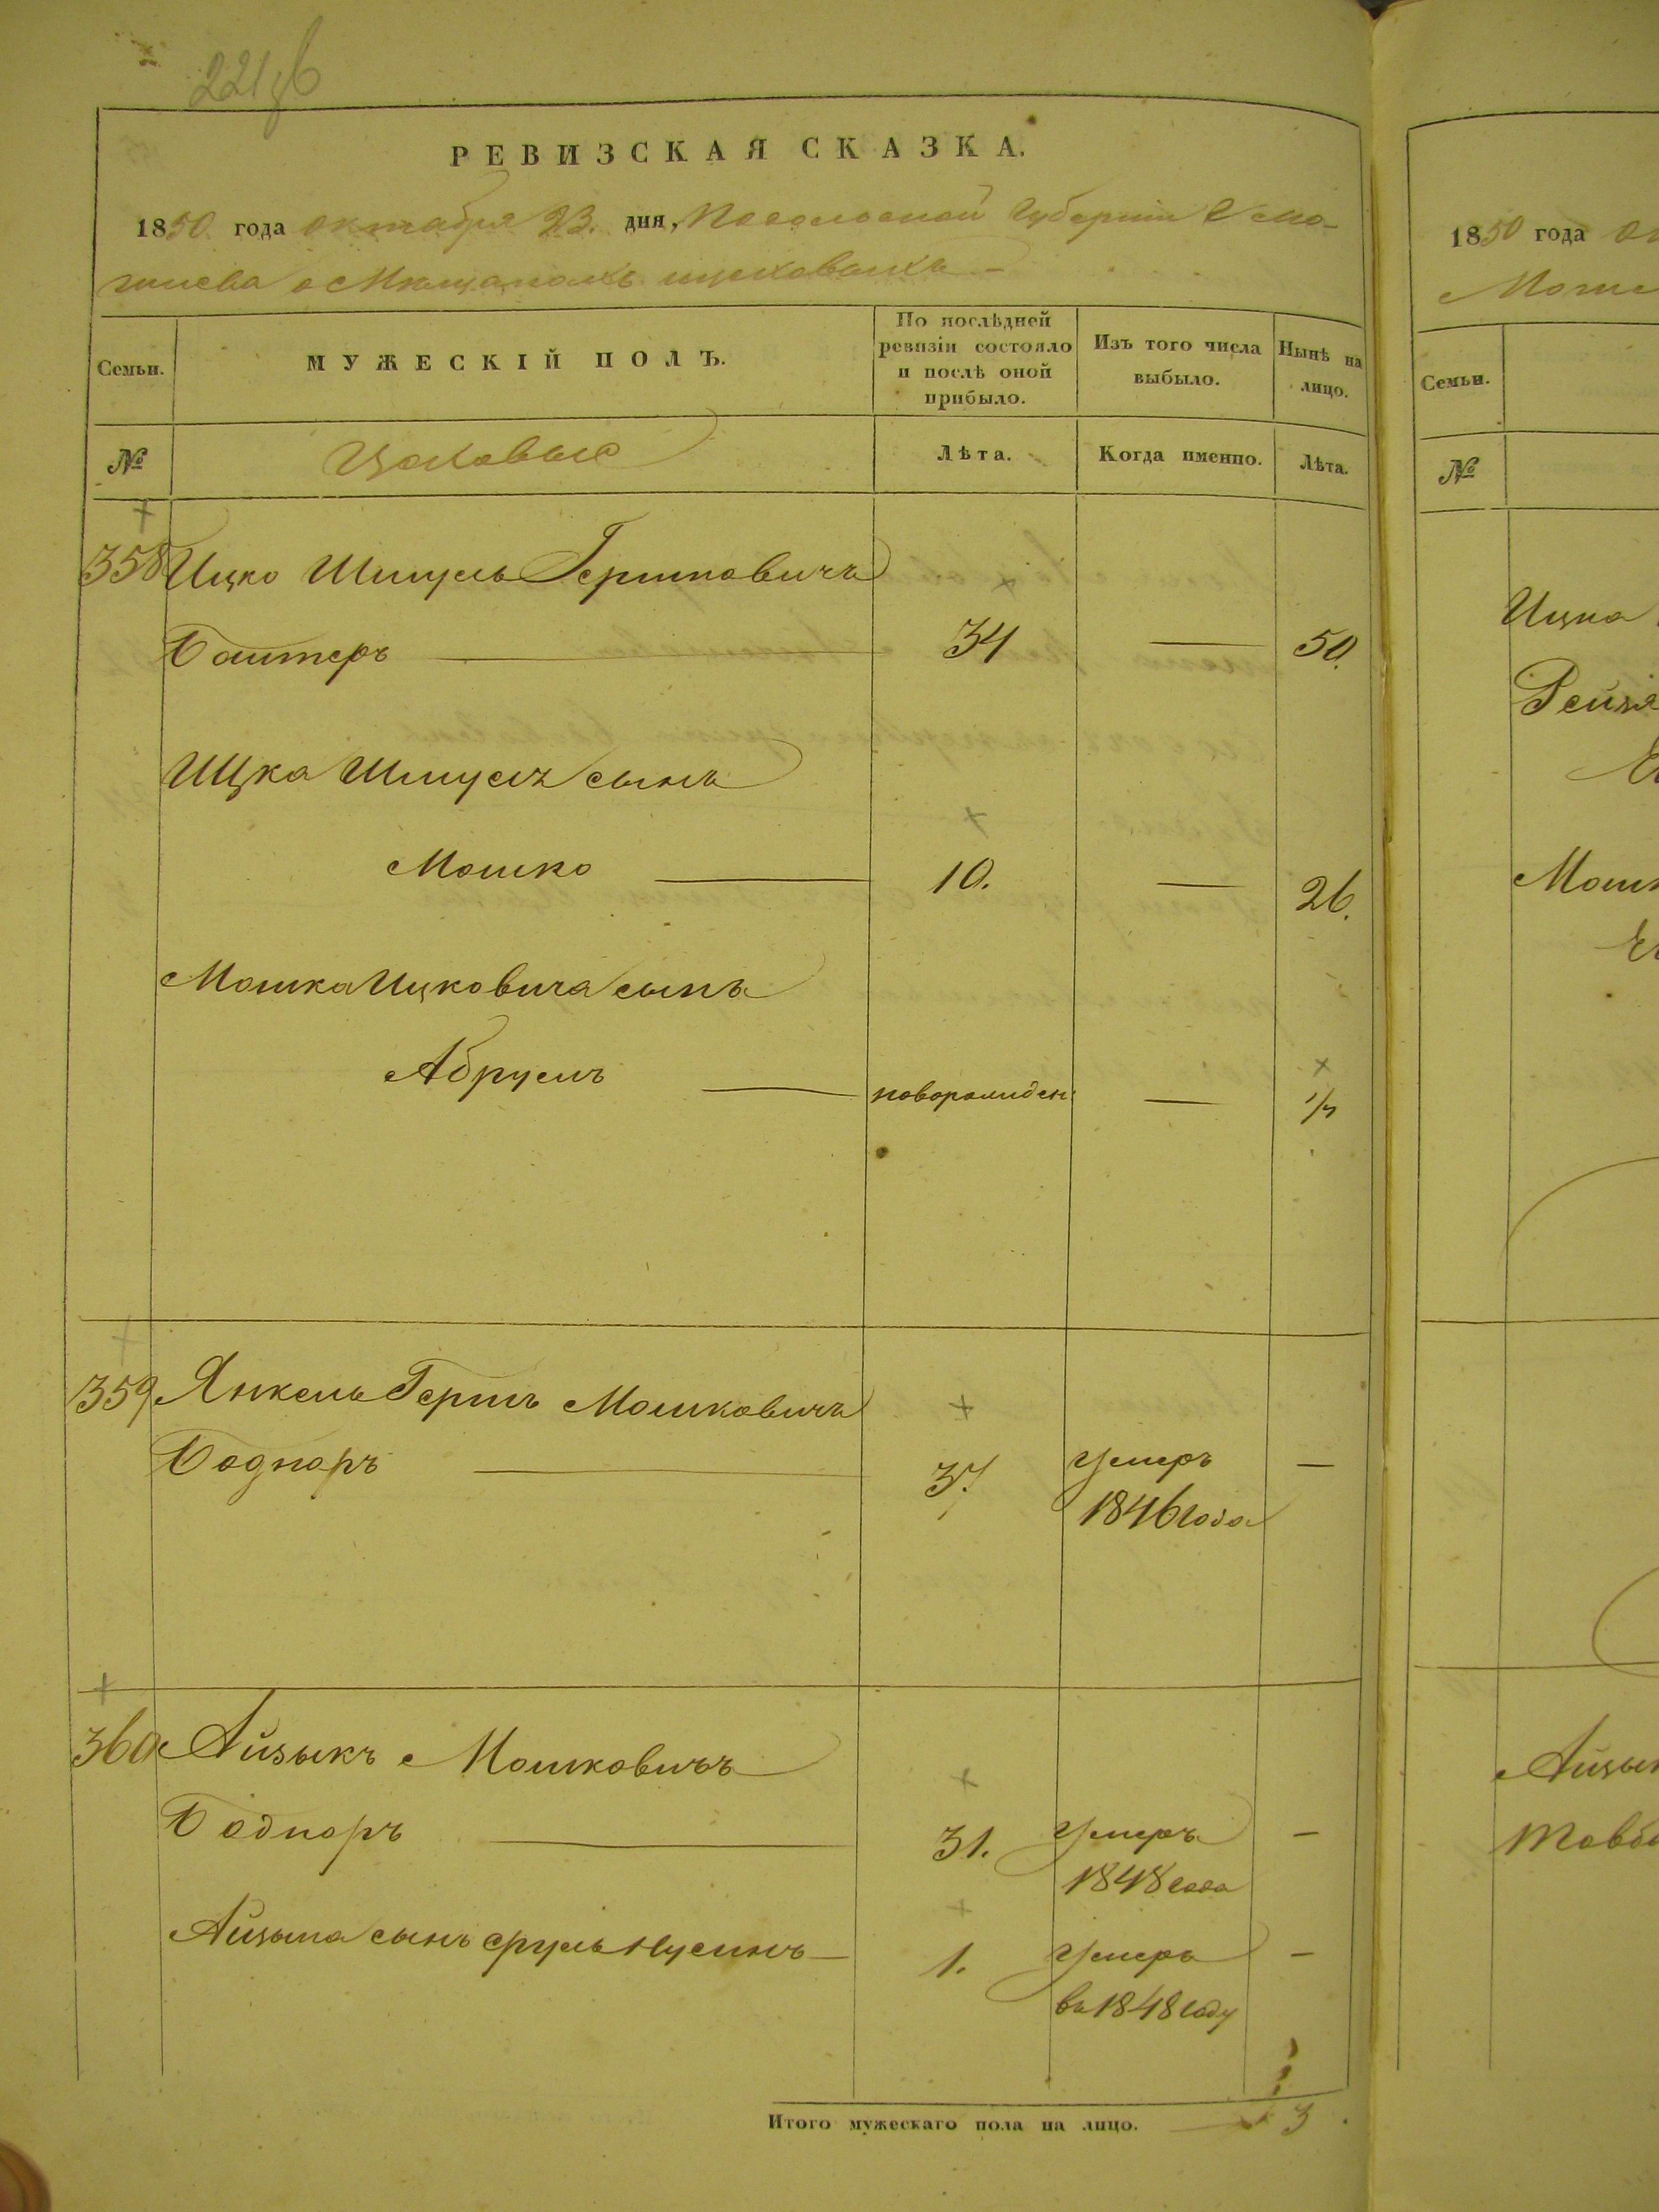 221 об
РЕВИЗСКАЯ СКАЗКА.
1850 года октября 23. дня, Подольской Губерніи г мо-
гилева о Мещанахъ цеховыхъ
Семьи.
МУЖЕСКІЙ ПОЛЪ.
По послѣдней ревизіи состояло и послѣ оной прибыло.
Изъ того числа выбыло.
Нынѣ на лицо.
№
Цеховые
Лѣта.
Когда именно.
Лѣта.
358 Ицко Шмуль Гершковичъ
34 — 50.
Ицка Шмуля сынъ
Мошко — 10. — 26.
Мошка Ицковича сынъ
новорожден — 1/2
359 Янкель Гершъ Мошковичъ
Боднаръ — 37. умеръ —
1846 года
360 Айзыкъ Мошковичъ
Боднаръ — 31. умеръ —
1848 года
Айзыка сынъ Сруль Нусинъ — 1. умеръ —
въ 1848 году
Итого мужескаго пола на лицо. 3
1850 года
Семьи.
№
Ицка
Мошк
Айзык